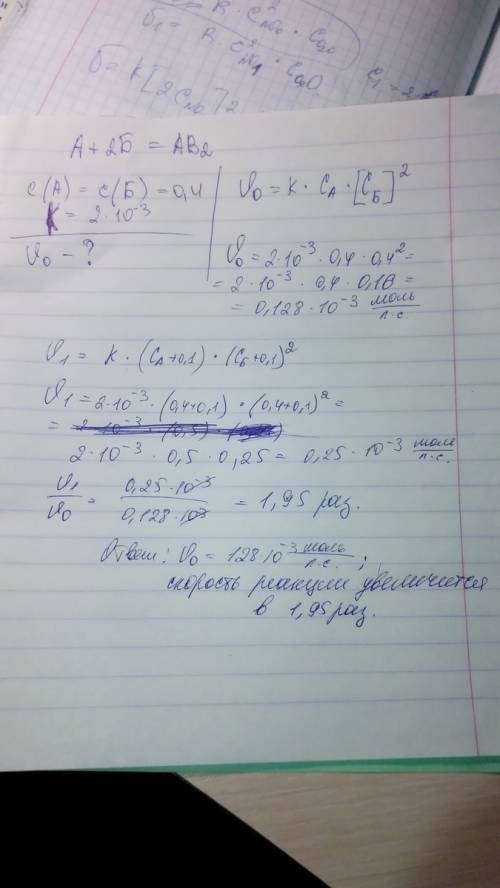 A + 2Б = АВ2
с(А) = с(Б) = 0,4
K = 2·10⁻³
υ₀ - ?
υ₀ = K · C_A · [C_Б]²
υ₀ = 2·10⁻³ · 0,4 · 0,4² =
= 2·10⁻³ · 0,4 · 0,16 =
= 0,128·10⁻³ моль/л·с.
υ₁ = K · (C_A+0,1) · (C_Б+0,1)²
υ₁ = 2·10⁻³ · (0,4+0,1) · (0,4+0,1)² =
=
2·10⁻³ · 0,5 · 0,25 = 0,25 · 10⁻³ моль/л·с.
υ₁/υ₀ = 0,25·10⁻³/0,128·10⁻³ = 1,95 раз.
Ответ: υ₀ = 128 10⁻³ моль/л·с. ;
скорость реакции увеличится
в 1,95 раз.